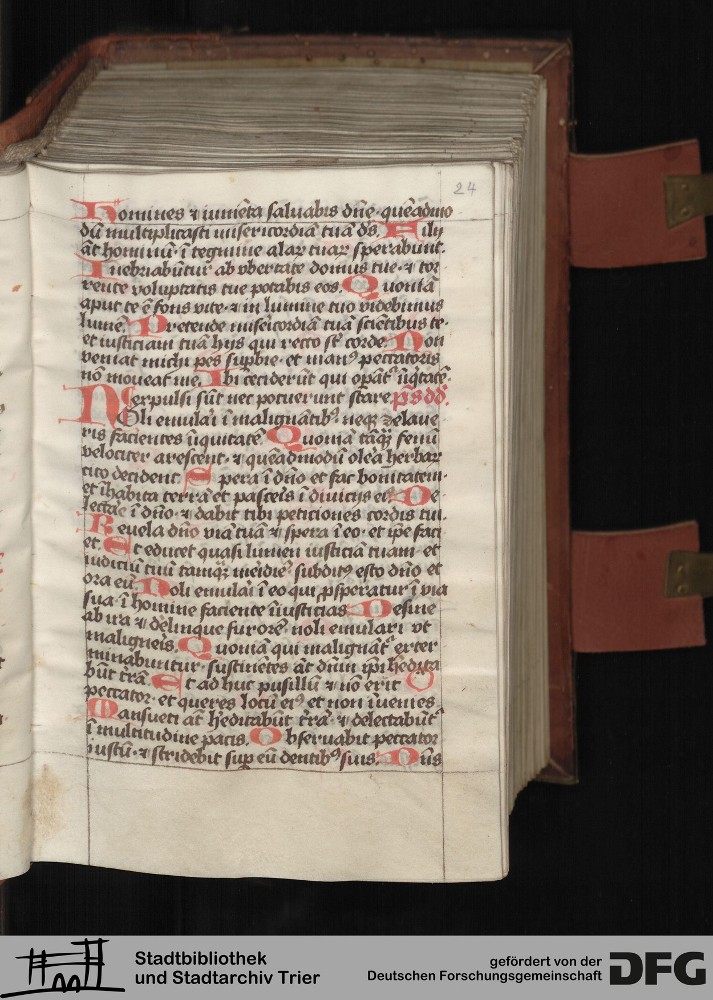 24
Homines ⁊ iumēta saluabis dñe· quēadmo
dū multiplicasti misericordiā tuā ds̄. Filij
āt hominū· ī tegmine alaꝝ tuaꝝ sperabunt.
Inebriabūtur ab vbertate domus tue· ⁊ tor
rente voluptatis tue potabis eos. Quoniā
aput te ē fons vite· ⁊ in lumine tuo videbimus
lumē. Pretende misericordiā tuā sciētibus te·
et iusticiam tuā hijs qui recto st̄ corde. Non
veniat michi pes supbie· et manꝰ peccatoris
nō moueat me. Ibi ceciderūt qui opāt᷑ īiq̄tatē·
expulsi sūt nec potuerunt stare. ps̄ dd̄.
Noli emulari ī malignātibꝰ· neqꝫ zelaue
ris facientes iīquitatē. Quoniā tāqꝫ fenū
velociter arescent· ⁊ quēadmodū olera herbaꝝ
cito decident. Spera ī dño et fac bonitatem·
et īhabita terrā et pasceris ī diuicijs eiꝰ. De
lectare ī dño· ⁊ dabit tibi peticiones cordis tui.
Reuela dño viā tuā ⁊ spera ī eo· et ipe faci
et. Et educet quasi lumen iusticiā tuam· et
iudiciū tuū tamqꝫ meidiē· subditꝰ esto dño et
ora eū. Noli emulari ī eo qui ꝓsperatur ī via
sua· ī homine faciente īiusticias. Desine
ab ira ⁊ delinque furorē· noli emulari vt
maligneris. Quoniā qui malignāt᷑ exter
minabuntur· sustinētes āt dnm ipī hedita
būt trā. Et adhuc pusillū ⁊ nō erit
peccator· et queres locū eiꝰ et non īuenies
Mansueti āt heditabūt trā· ⁊ delectabūt᷑
ī multitudine pacis. Obseruabit peccator
iustū· ⁊ stridebit sup eū dentibꝰ suis. Dñs
Stadtbibliothek
und Stadtarchiv Trier
gefördert von der
Deutschen Forschungsgemeinschaft DFG